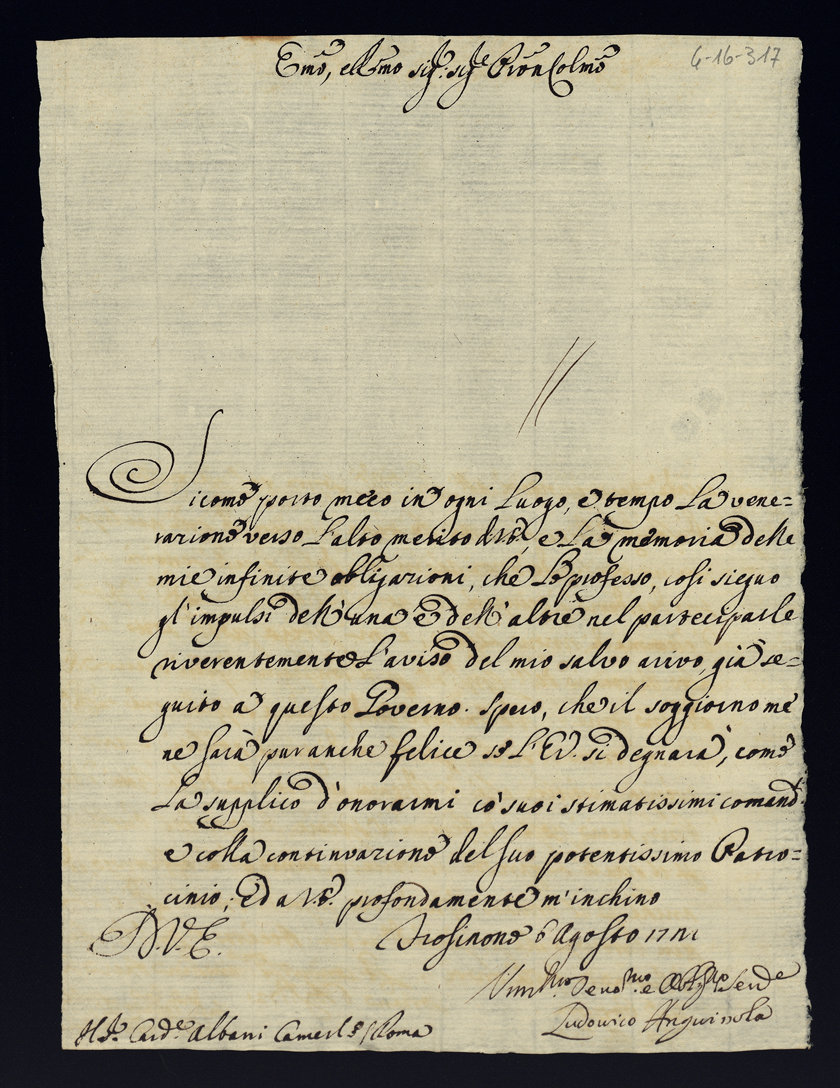 Emo, e Rmo sig.r sig.re Pron Colmo
6-16-317
Sicome porto meco in ogni Luogo, e tempo La vene=
razione verso L'alto merito di V.E., e La memoria delle
mie infinite obligazioni, che Le professo, così sieguo
gl'impulsi dell'una e dell'altre nel parteciparle
riverentemente L'aviso del mio salvo arivo già se=
guito a questo Governo. Spero, che il soggiorno me
ne sarà pur anche felice se L'E.V. si degnarà, come
La supplico d'onorarmi co' suoi stimatissimi comandi
e colla continuazione del suo potentissimo Patro=
cinio; Ed a V.E. profondamente m'inchino
D.V.E.
Frosinone 6 Agosto
Um.mo Deuo.mo e Obl.mo Seru.e
Ludovico Anguissola
Card.e Albani Camerl.o / Roma